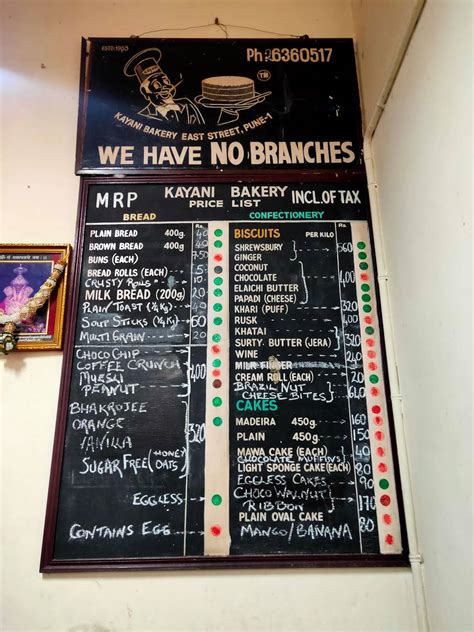 ESTD: 1955
Ph: 26360517
TM
KAYANI BAKERY EAST STREET, PUNE-1
WE HAVE NO BRANCHES
MRP
KAYANI BAKERY
PRICE LIST
INCL. OF TAX
BREAD
PLAIN BREAD 400g.
BROWN BREAD 400g.
BUNS (EACH)
BREAD ROLLS (EACH)
CRUSTY ROLLS
MILK BREAD (200g)
PLAIN TOAST (¼KG)
SOUP STICKS (¼KG) 60
MULTI GRAIN
CHOCO CHIP
COFFEE CRUNCH
MUESLI
PEANUT
400
BHAKROJEE
ORANGE
VANILLA
SUGARFREE (HONEY OATS)
320
EGGLESS
CONTAINS EGG
CONFECTIONERY
BISCUITS PER KILO Rs.
SHREWSBURY 560
GINGER
COCONUT
CHOCOLATE
ELAICHI BUTTER
PAPADI (CHEESE)
KHARI (PUFF)
RUSK
KHATAI
SURTY BUTTER (JERA)
WINE
MILK FINGER
CREAM ROLL (EACH)
BRAZIL NUT
CHEESE BITES
CAKES
MADEIRA 450g. 160
PLAIN 450g. 150
MAWA CAKE (EACH)
CHOCOLATE MUFFINS
LIGHT SPONGE CAKE (EACH)
EGGLESS CAKES 90
CHOCO WALNUT 170
RIBBON
PLAIN OVAL CAKE
MANGO/BANANA 80